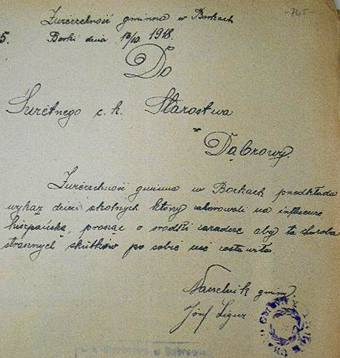 Zwierzchność gminna w Borkach
-765-
5. Borki dnia 19/10 1918.
Do
Świetnego c. k. Starostwa
w
Dąbrowy.
Zwierzchność gminna w Borkach przedkłada
wykaz dzieci szkolnych który zchorowali na influence
hiszpańską, prosząc o środki zaradcze aby ta choroba
strasznych skutków po sobie nie zostawiła
Naczelnik gminy
Józef